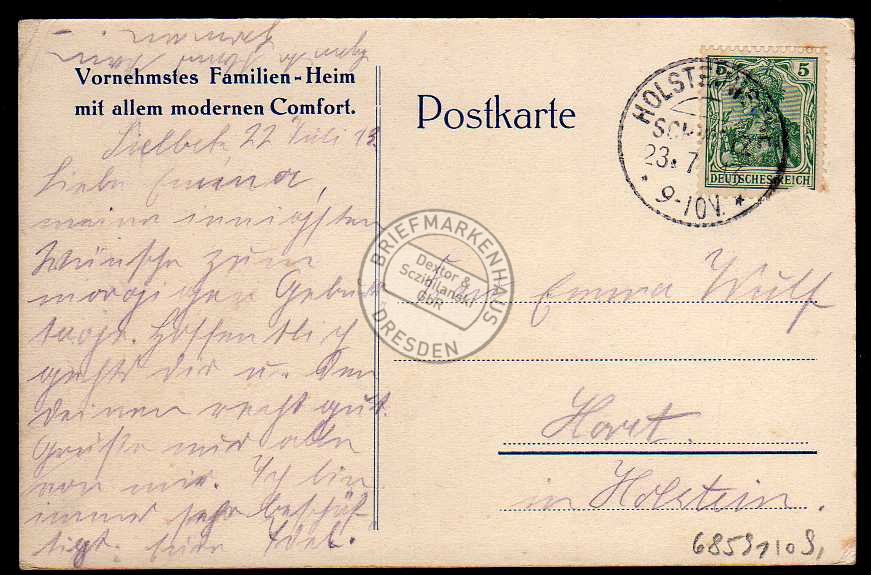 Vornehmstes Familien-Heim
mit allem modernen Comfort.
Postkarte
Sielbek 22 Juli 12
Liebe Emma,
meine innigsten
Wünsche zum
morgigen Geburts
tage. Hoffentlich
gehts dir u. den
Deinen recht gut.
Grüße mir alle
von mir. Ich bin
immer sehr beschäf
tigt.
HOLSTEIN
SCHWEIZ
23. 7
9-10V.
5
DEUTSCHES REICH
BRIEFMARKENHAUS
Dextor &
Sczibilanski
GbR
DRESDEN
Emma Wulf
Horst
in Holstein.